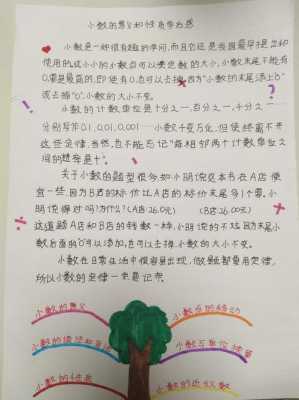 小数的意义和性质学后感
小数是一种很有趣的学问,而且它还是我国最早提出和
使用的。这小小的小数点可以决定数的大小,小数末尾不能有
0,要是最高的,即使有0,也可以去掉,因为"小数的末尾添上"0"
或去掉"0",小数的大小不变。
小数的计数单位是十分之一、百分之一、千分之一……
分别写作0.1、0.01、0.001……小数千变万化,但使终离不开
这些定律,当然,也不能忘记"每相邻两个计数单位之
间的进率是十"。
关于小数的题型很多,如小明说这本书在A店便
宜一些,因为B店的标价比A店的标价末尾多1个零。小
明说得对吗?为什么?(A店26.0元) (B店26.00元)
这道题A店和B店的钱数一样,小明说的不对,因为末尾小
数后面的"0"可以添加,也可以去掉,小数的大小不变。
小数在日常生活中很容易出现,做题都要用定律,
所以小数的定律一定要记牢。
小数的意义
小数点的移动
小数的读法和写法
小数与单位换算
小数的性质
小数的近似数